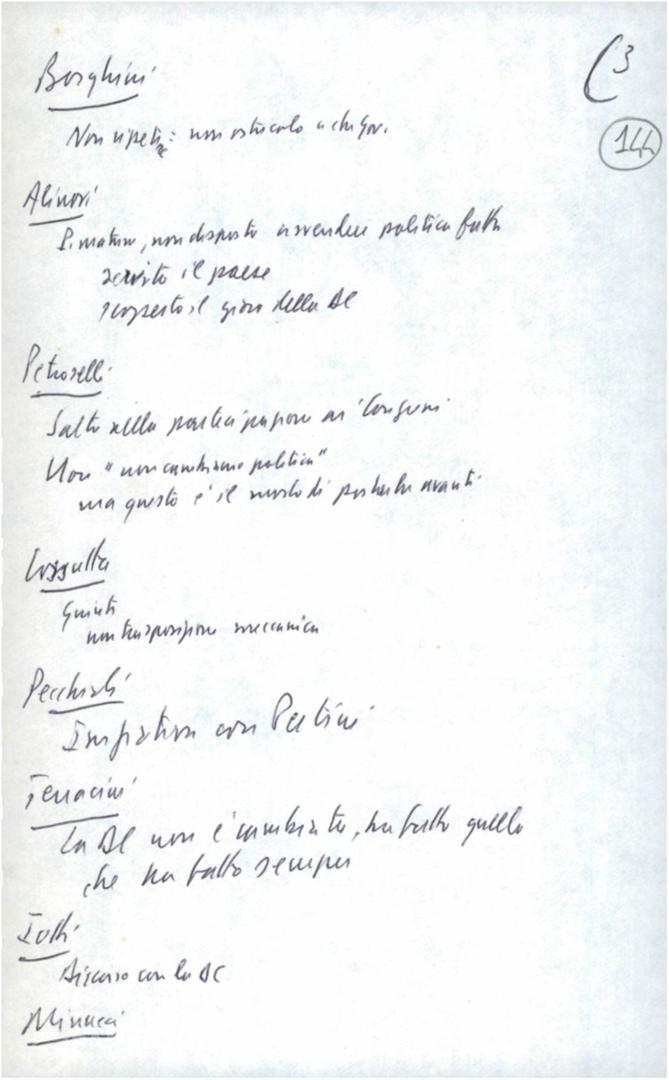 (3
144
Borghini
Non ripetere: non ostacolo a chi gov.
Alinovi
P. mature, non disposto a svendere politica fatta
scosso il paese
scoperto il gioco della DC
Petroselli
Salto nella partecipazione ai Congressi
Non "non cambiamo politica"
ma questo è il modo di portarla avanti
Cossutta
Giunte
non trasposizione meccanica
Pecchioli
Iniziativa con Pertini
Terracini
La DC non è cambiata, ha fatto quello
che ha fatto sempre
Iotti
Discorso con la DC
Minucci